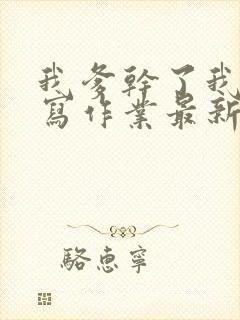 我爹幹了我
寫作業最新
駱惠寧